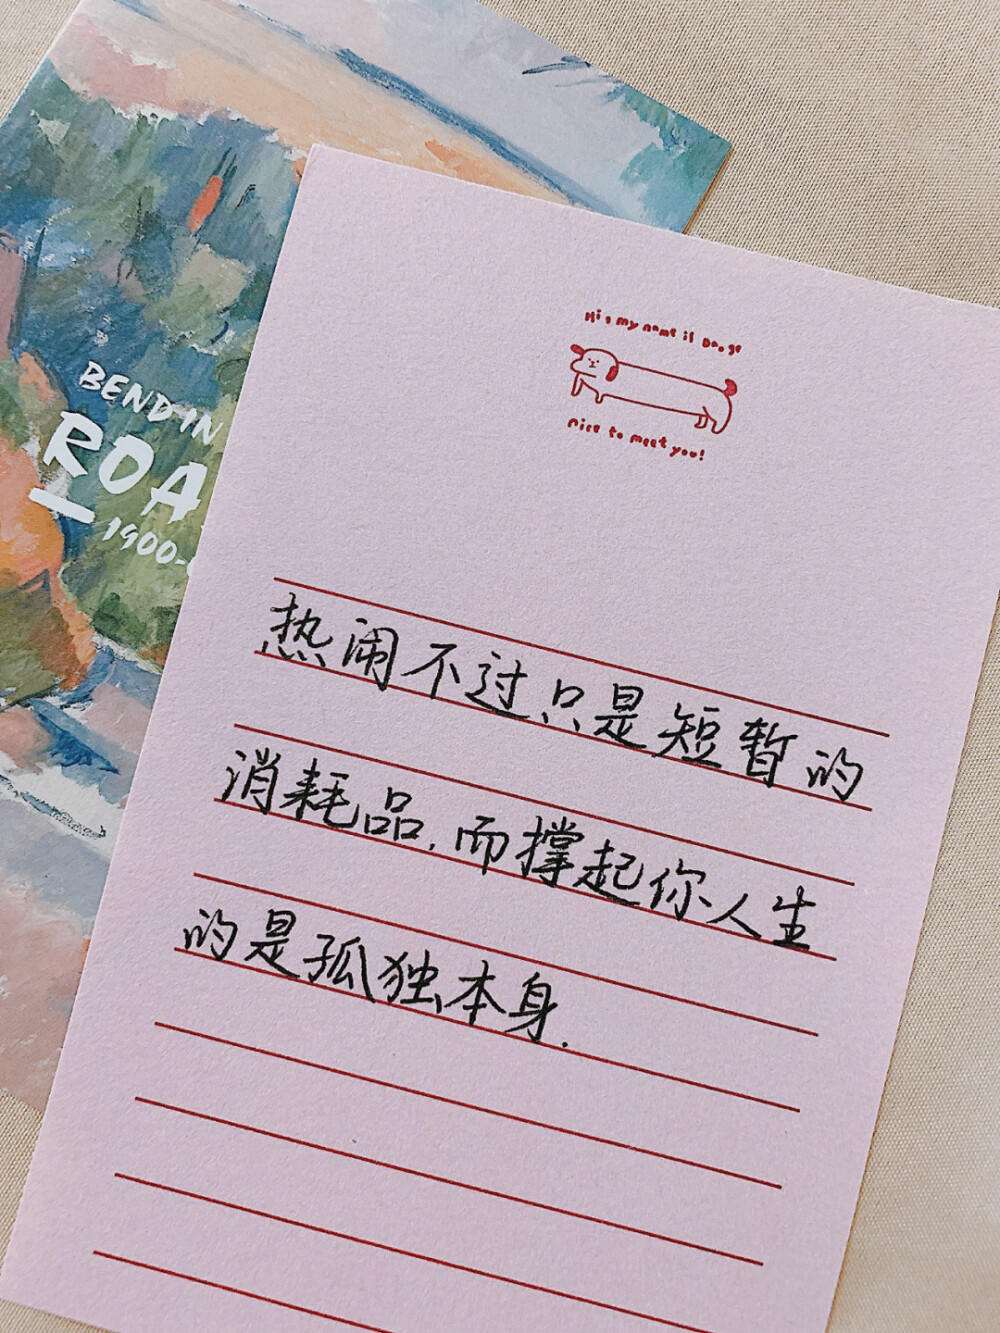 BEND IN
ROA
1900-
Hi, my name is Doge
nice to meet you!
热闹不过只是短暂的
消耗品.而撑起你人生
的是孤独本身.